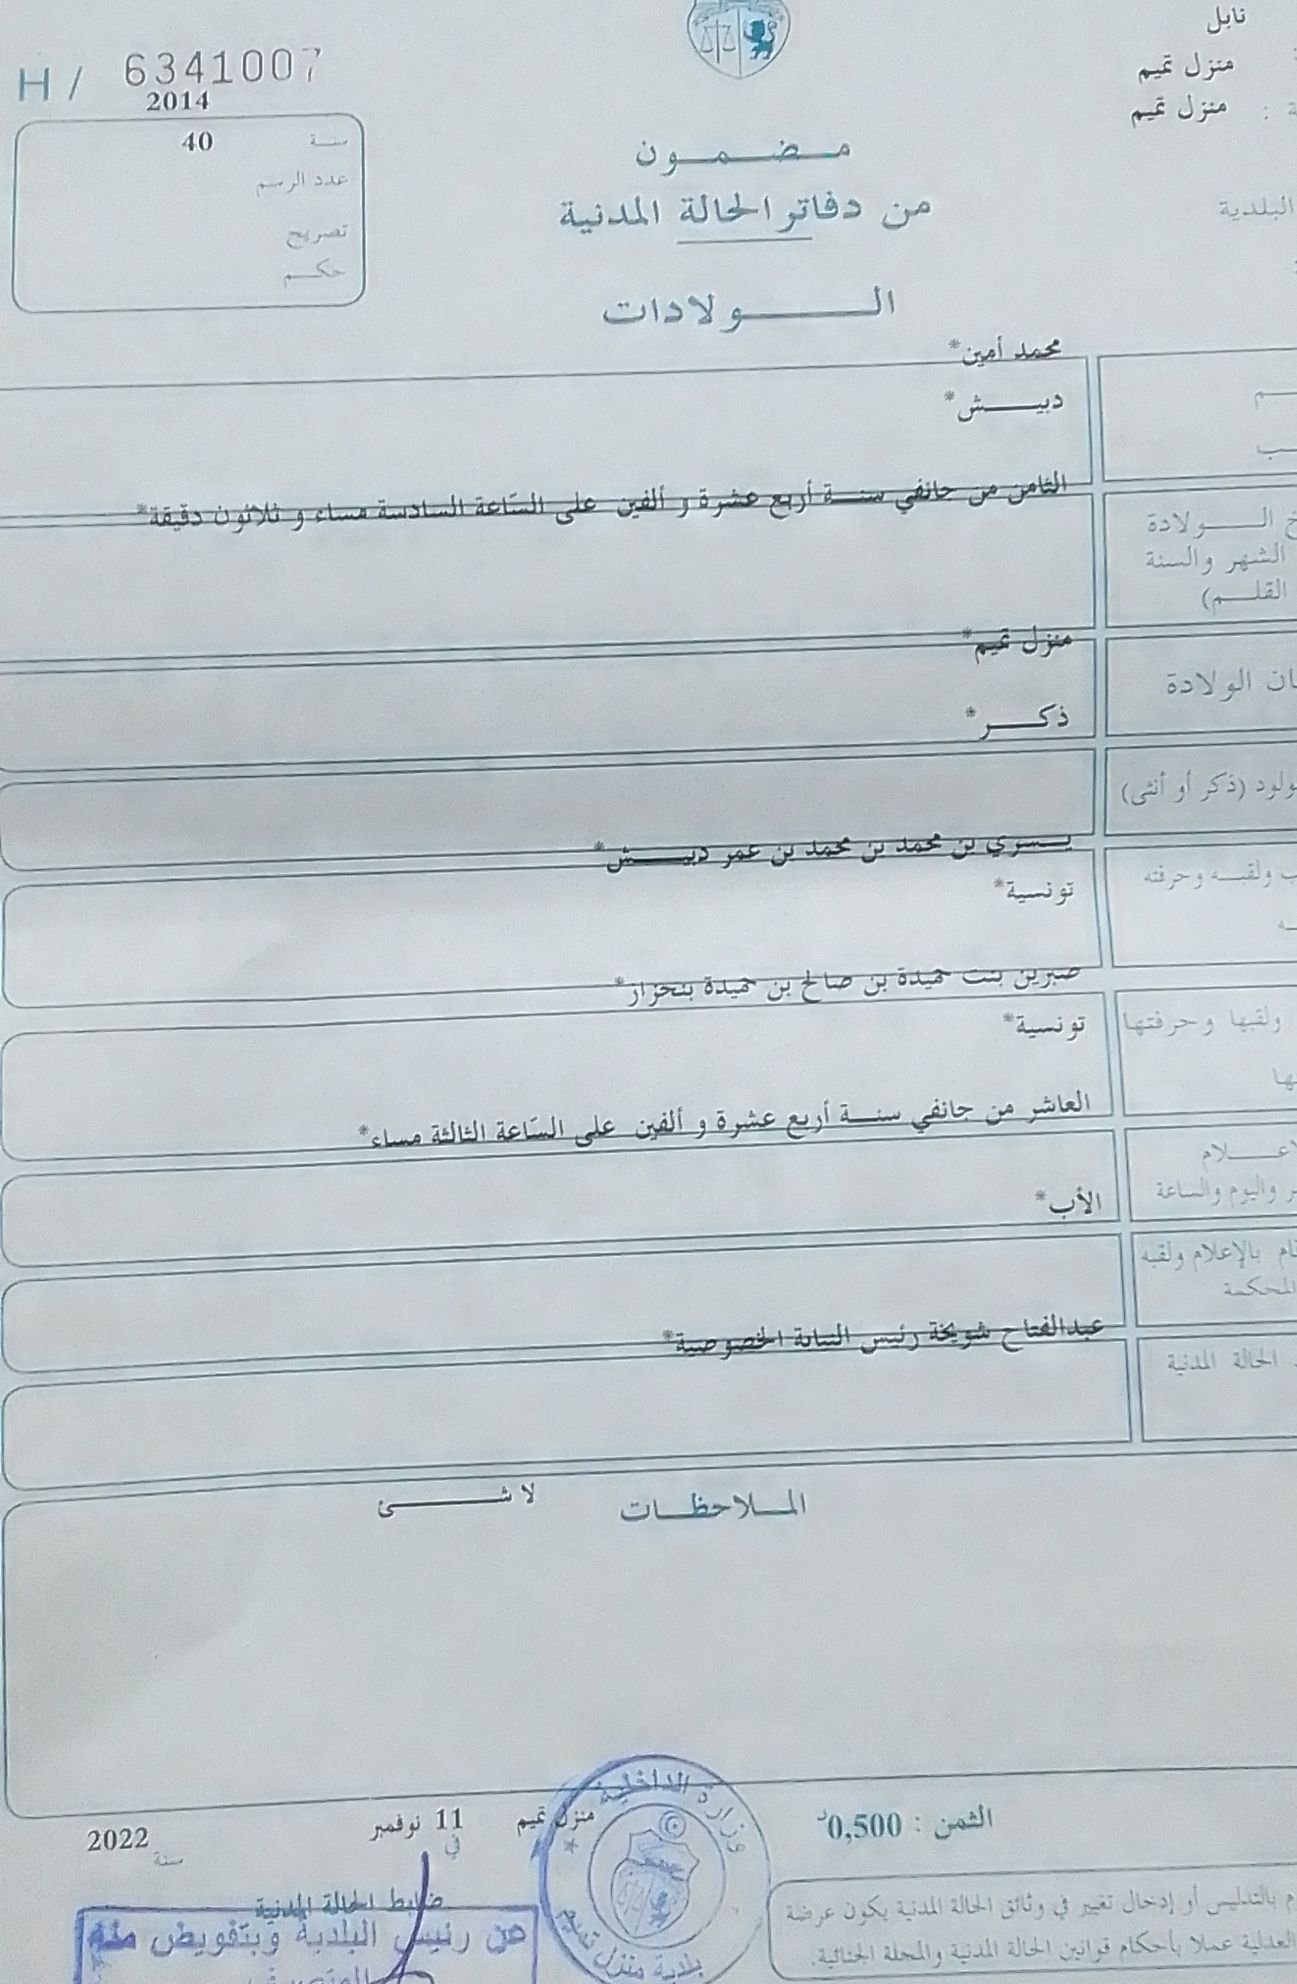 نابل
منزل تميم
منزل تميم
H / 6341007
2014
سنة 40
عدد الرسم
تصريح
حكم
مضمون
من دفاتر الحالة المدنية
الولادات
البلدية
محمد أمين*
دبيش*
الثامن من جانفي سنة أربع عشرة و ألفين على السّاعة السادسة مساء و ثلاثون دقيقة*
الولادة
الشهر والسنة
القلم)
منزل تميم*
الولادة
ذكر*
(ذكر أو أنثى)
يسري بن محمد بن محمد بن عمر دبيش*
ولقبه وحرفته
تونسية*
صبرين بنت حميدة بن صالح بن حميدة بنحزاز*
ولقبها وحرفتها
تونسية*
العاشر من جانفي سنة أربع عشرة و ألفين على السّاعة الثالثة مساء*
واليوم والساعة
الأب*
بالإعلام ولقبه
المحكمة
عبدالفتاح شويخة رئيس النيابة الخصوصية*
الحالة المدنية
الملاحظات لا شئ
الثمن : 0,500د
منزل تميم في 11 نوفمبر سنة 2022
ضابط الحالة المدنية
عن رئيس البلدية وبتفويض منه
المتصرف
وزارة الداخلية
بلدية منزل تميم
بالتدليس أو إدخال تغيير في وثائق الحالة المدنية يكون عرضة
العدلية عملا بأحكام قوانين الحالة المدنية والمجلة الجنائية.